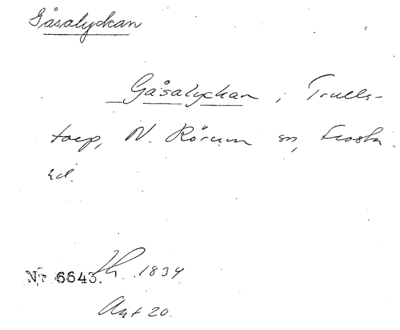 Gåsalyckan
Gåsalyckan, Trulls-
torp, N. Rörum sn, Frosta
hd.
Nr 6643. Lh. 1834
Akt 20.